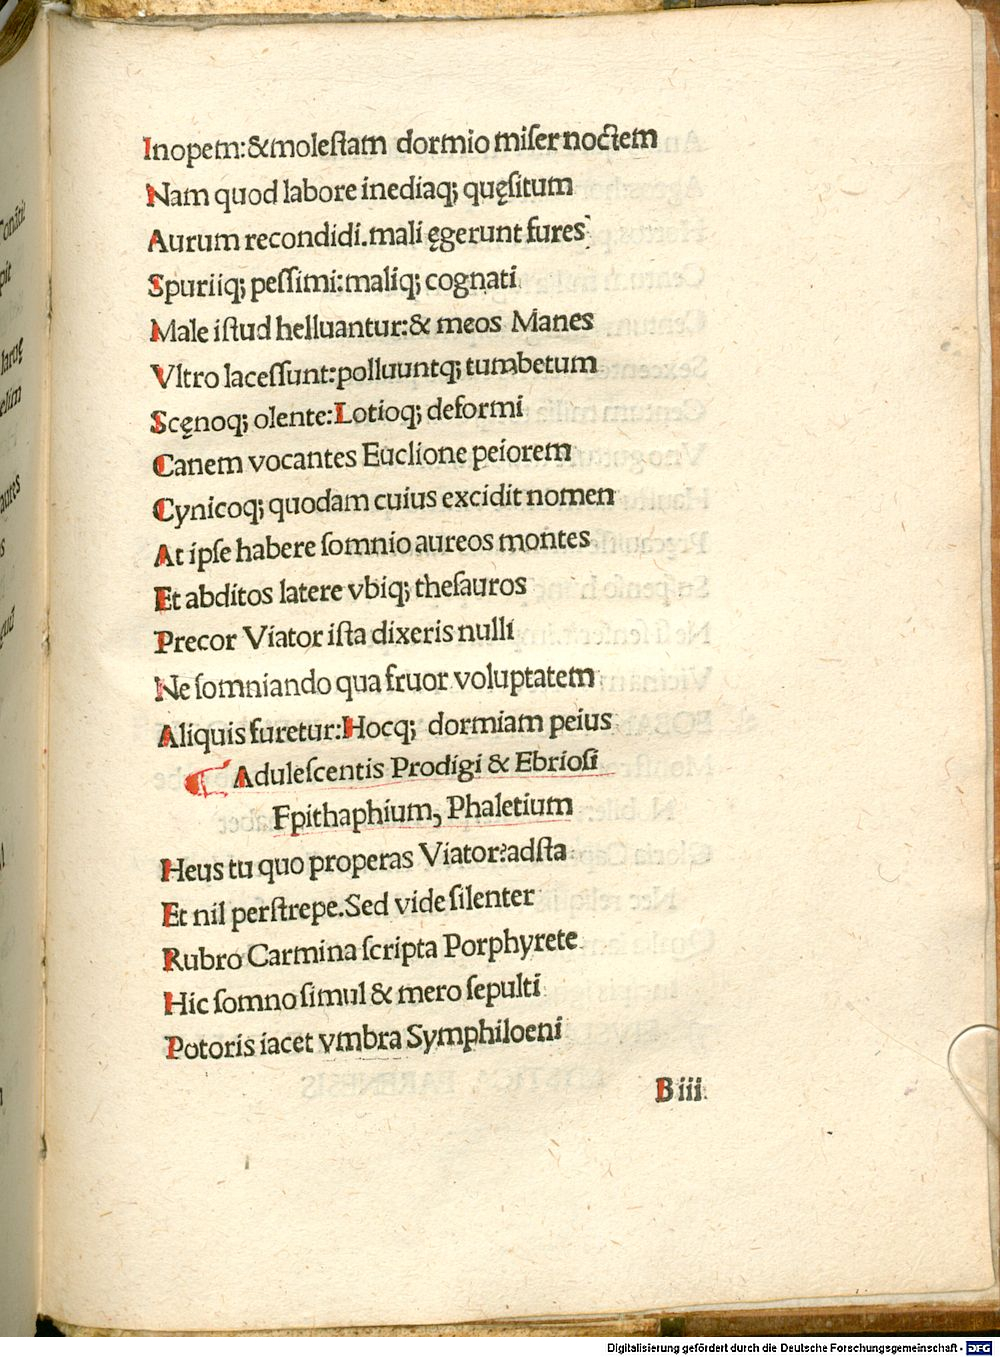 Inopem:&moleſtam dormio miſer noctem
Nam quod labore inediaq; quęſitum
Aurum recondidi.mali ęgerunt fures
Spuriiq; peſſimi:maliq; cognati
Male iſtud helluantur:& meos Manes
Vltro laceſſunt:polluuntq; tumbetum
Scęnoq; olente:Lotioq; deformi
Canem vocantes Euclione peiorem
Cynicoq; quodam cuius excidit nomen
At ipſe habere ſomnio aureos montes
Et abditos latere vbiq; theſauros
Precor Viator iſta dixeris nulli
Ne ſomniando qua fruor voluptatem
Aliquis furetur:Hocq; dormiam peius
Aduleſcentis Prodigi & Ebrioſi
Epithaphium, Phaletium
Heus tu quo properas Viator?adſta
Et nil perſtrepe.Sed vide ſilenter
Rubro Carmina ſcripta Porphyrete
Hic ſomno ſimul & mero ſepulti
Potoris iacet vmbra Symphiloeni
B iii.
Digitalisierung gefördert durch die Deutsche Forschungsgemeinschaft - DFG